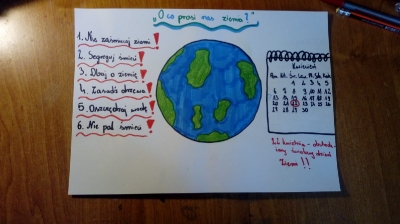 „O co prosi nas ziemia?"
1. Nie zaśmiecaj ziemi!
2. Segreguj śmieci!
3. Dbaj o ziemię!
4. Zasadź drzewo!
5. Oszczędzaj wodę!
6. Nie pal śmieci!
Kwiecień
Pn. Wt. Śr. Czw. Pt. Sob. Nd.
1 2 3 4 5
6 7 8 9 10 11 12
13 14 15 16 17 18 19
20 21 22 23 24 25 26
27 28 29 30
22 kwietnia - obchodzimy światowy dzień
Ziemi!!